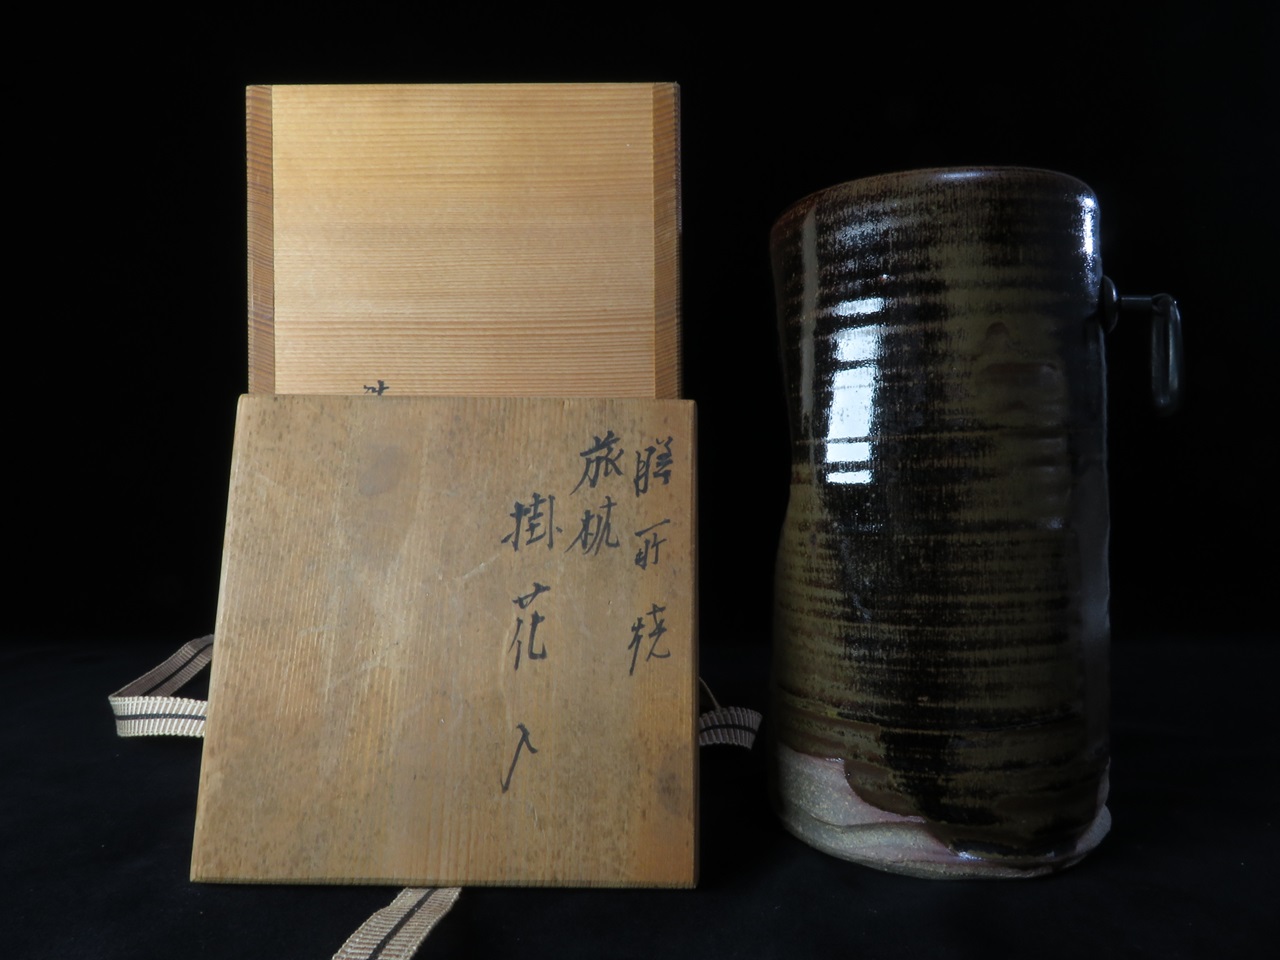 膳所焼
旅枕
掛花入